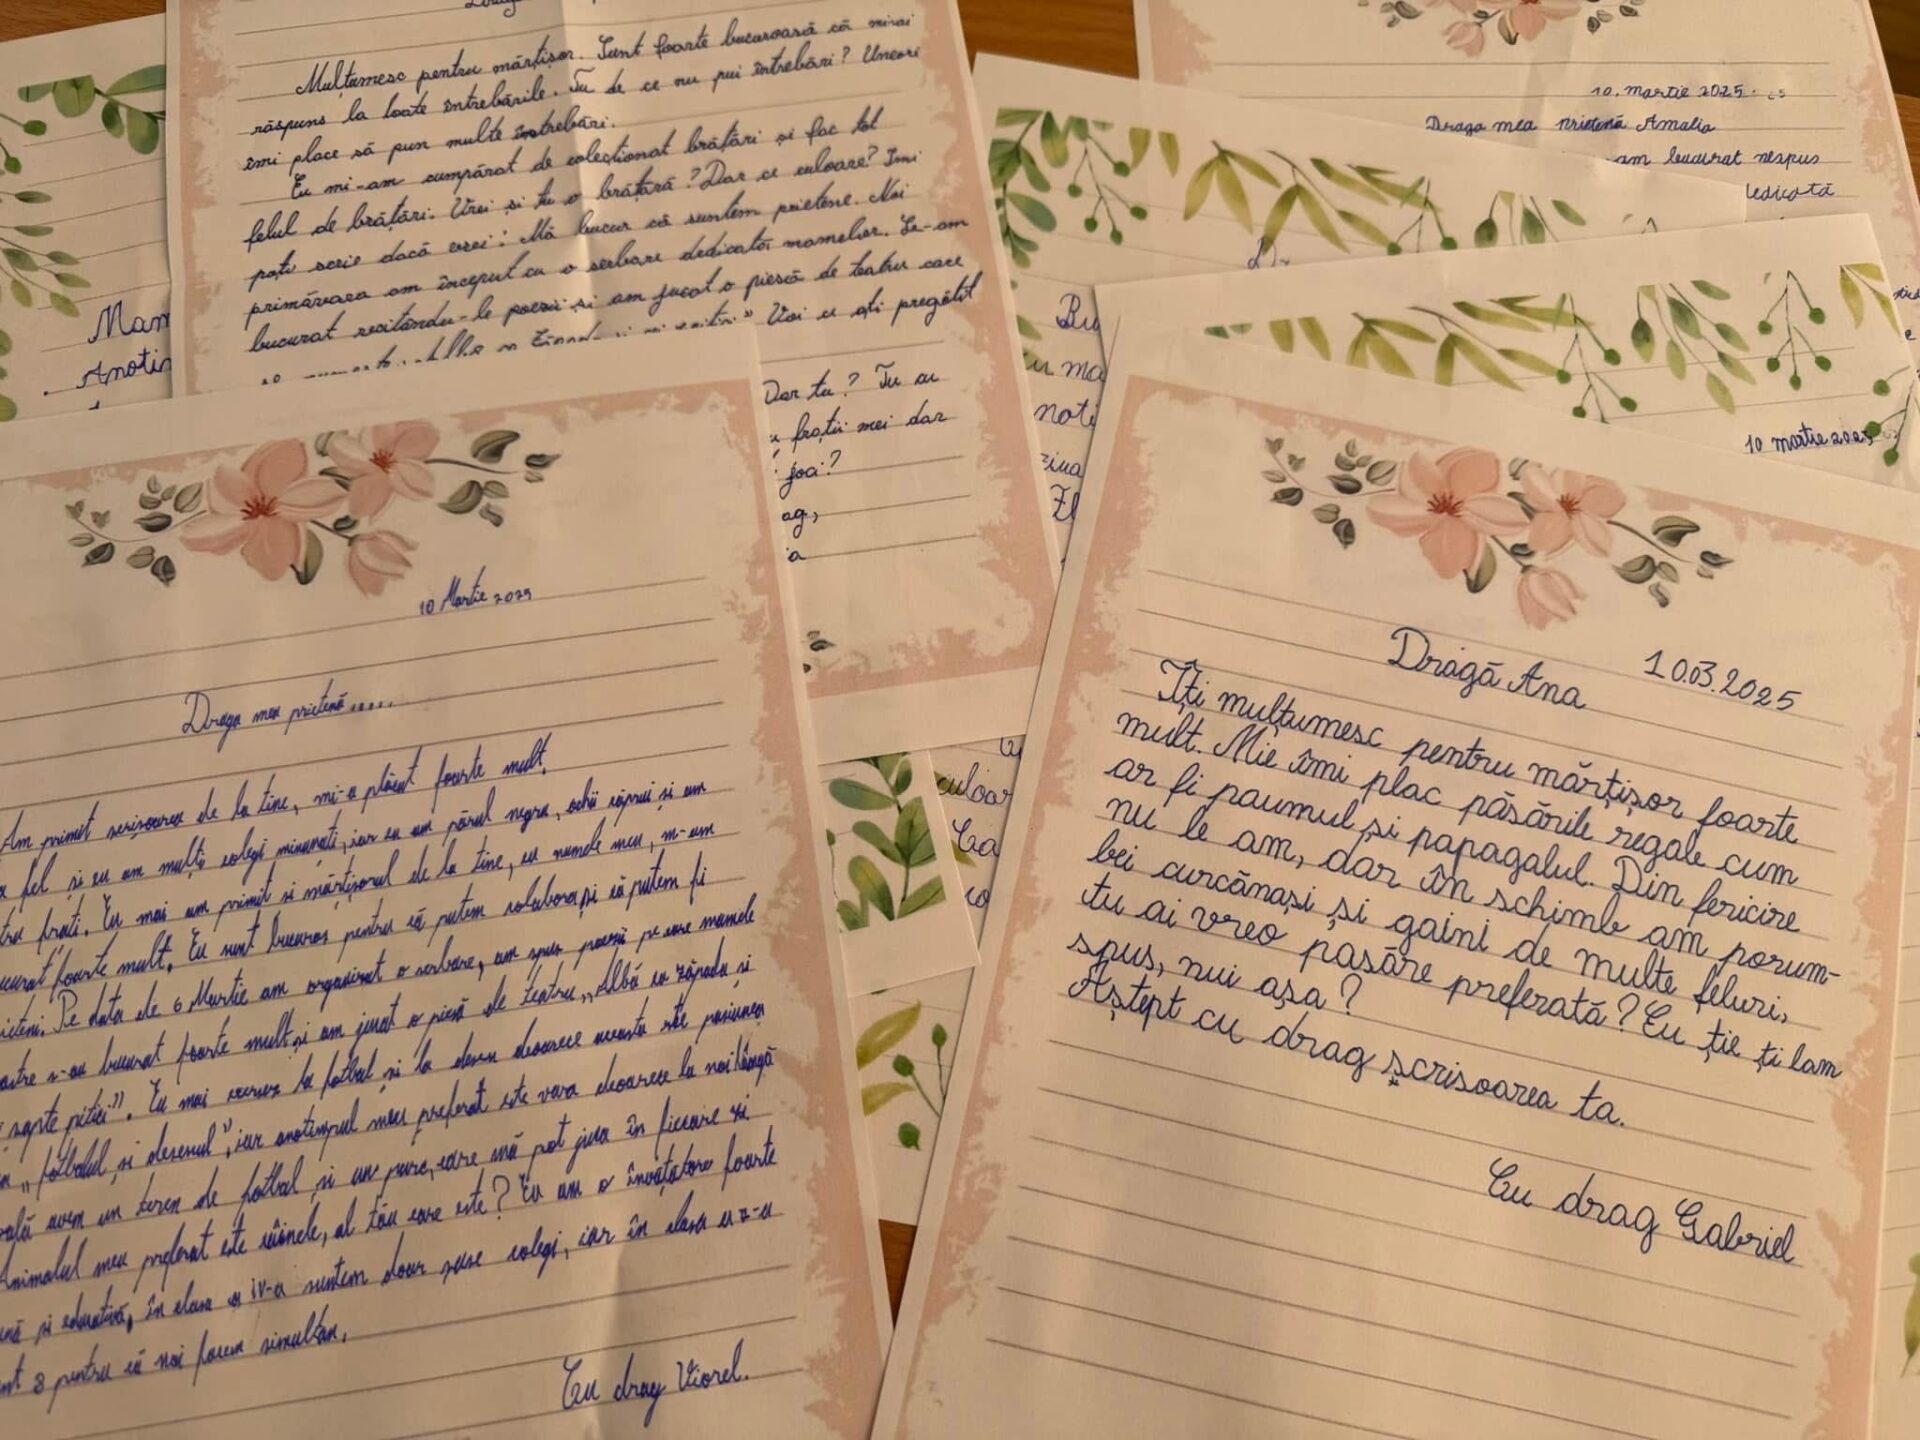 Mulțumesc pentru mărțișor. Sunt foarte bucuroasă că mirai
răspuns la toate întrebările. Tu de ce nu pui întrebări? Uneori
îmi place să pun multe întrebări.
Eu mi-am cumpărat de colecționat brățări și fac tot
felul de brățări. Vrei și tu o brățară? Dar ce culoare? Îmi
poți scrie dacă vrei! Mă bucur că suntem prietene. Noi
primăvara am început cu o serbare dedicată mamelor. Le-am
bucurat recitându-le poezii și am jucat o piesă de teatru care
Voi ce ați pregătit
Dar tu? Tu ai
frații mei dar
joci?
ag,
a
Mam
Anotim
10. martie 2025.
Draga mea prietenă Amalia
am bucurat nespus
dedicată
Bu
u ma
noti
ziua
10 martie 2025
culoar
10 Martie 2025
Draga mea prietenă.....
Am primit scrisoarea de la tine, mi-a plăcut foarte mult,
fel și eu am mulți colegi minunați, iar eu am părul negru, ochii căprui și am
frați. Eu mai am primit și mărțișorul de la tine, cu numele meu, m-am
bucurat foarte mult. Eu sunt bucuros pentru că putem colabora și că putem fi
prieteni. Pe data de 6 Martie am organizat o serbare, am spus poezii pe care mamele
noastre s-au bucurat foarte mult și am jucat o piesă de teatru „Albă ca zăpada și
șapte pitici”. Eu mai exersez la fotbal și la desen deoarece aceasta este pasiunea
„fotbalul și desenul”, iar anotimpul meu preferat este vara deoarece la noi lângă
școală avem un teren de fotbal și un parc, care mă pot juca în fiecare zi
Animalul meu preferat este câinele, al tău care este? Eu am o învățătoare foarte
bună și educativă, în clasa a IV-a suntem doar șase colegi, iar în clasa a 3-a
sunt 3 pentru că noi facem simultan.
Cu drag Viorel.
10.03.2025
Dragă Ana
Îți mulțumesc pentru mărțișor foarte
mult. Mie îmi plac păsările regale cum
ar fi paumul și papagalul. Din fericire
nu le am, dar în schimb am porum-
bei curcănași și gaini de multe feluri,
tu ai vreo pasăre preferată? Eu ție ți lam
spus, nui așa?
Aștept cu drag scrisoarea ta.
Cu drag Gabriel